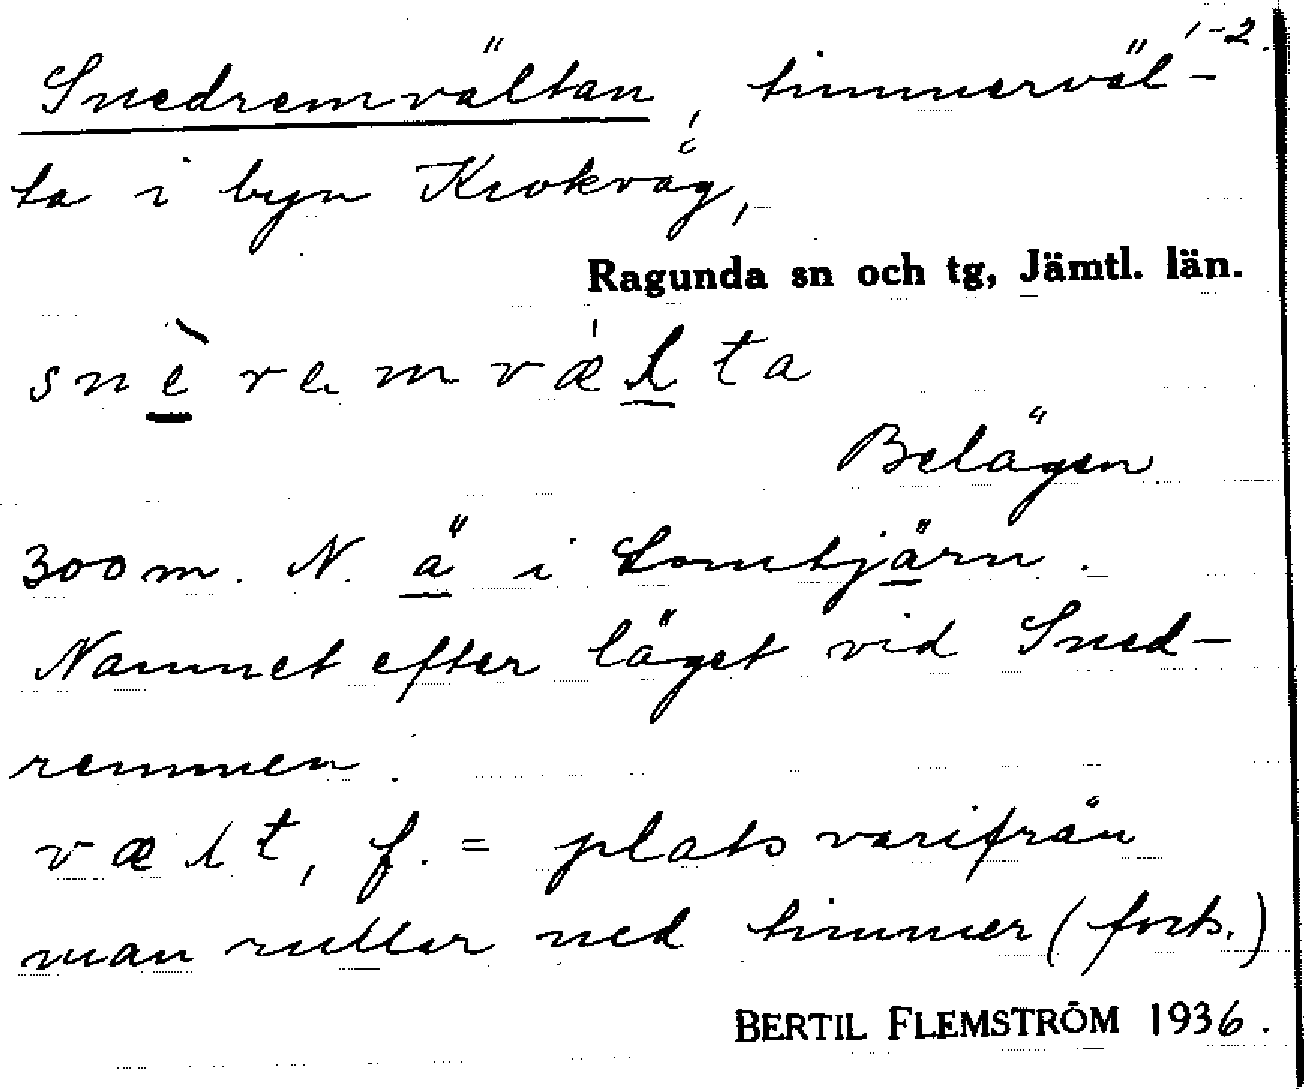 1-2.
Snedremvältan, timmerväl-
ta i byn Krokvåg,
Ragunda sn och tg, Jämtl. län.
snè̱remvæ̍ḻta
Belägen
300 m. N. ä̱ i Lomtjä̱rn.
Namnet efter läget vid Sned-
remmen.
vælt, f. = plats varifrån
man rullar ned timmer (forts.)
BERTIL FLEMSTRÖM 1936.